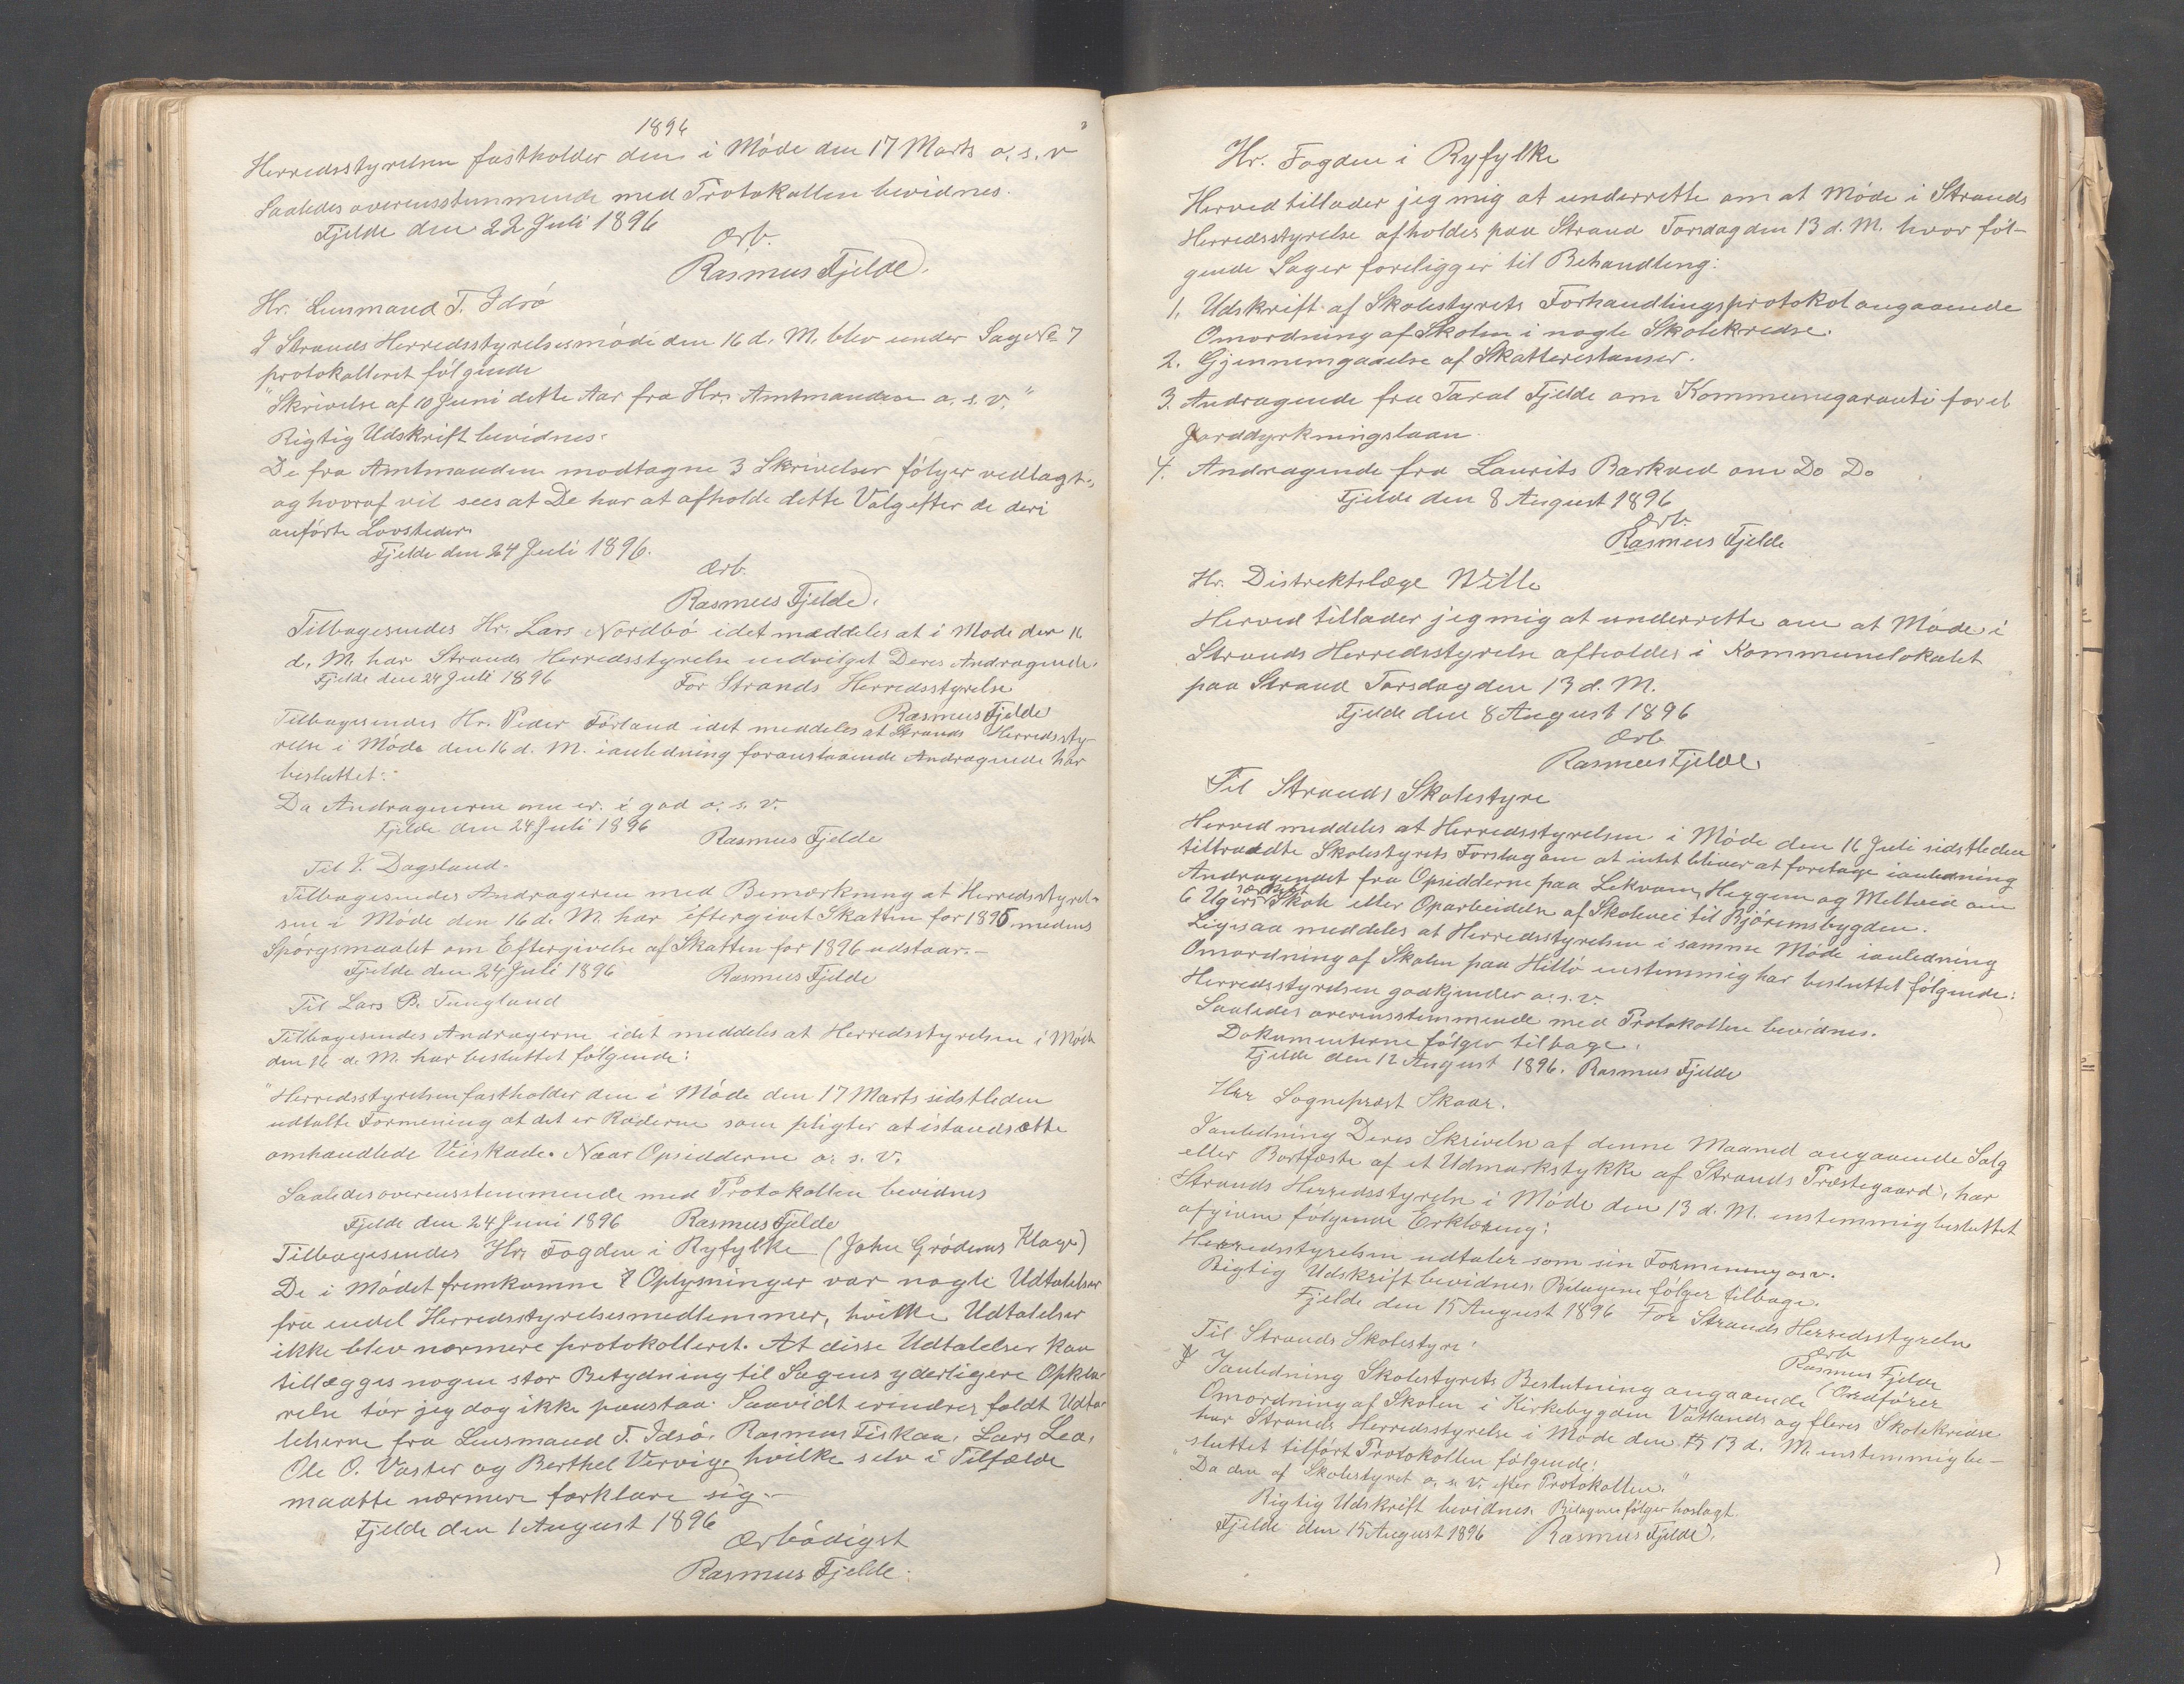 1896
Herredsstyrelsen fastholder den i Möde den 17 Marts o. s. v
Saaledes overensstemmende med Protokollen bevidnes.
Fjelde den 22 Juli 1896
Ærb.
Rasmus Fjelde.
Hr. Lensmand T. Idsö
I Strands Herredsstyrelsesmöde den 16 d. M. blev under Sag No 7
protokolleret fölgende
"Skrivelse af 10 Juni dette Aar fra Hr. Amtmanden o. s. v."
Rigtig Udskrift bevidnes.
De fra Amtmanden modtagne 3 Skrivelser fölger vedlagt,
og hvoraf vil sees at De har at afholde dette Valg efter de deri
anförte Lovsteder.
Fjelde den 24 Juli 1896.
Ærb.
Rasmus Fjelde.
Tilbagesendes Hr. Lars Nordbö idet meddeles at i Möde den 16
d. M. har Strands Herredsstyrelse indvilget Deres Andragende.
Fjelde den 24 Juli 1896 For Strands Herredsstyrelse
Rasmus Fjelde
Tilbagesendes Hr. Peder Förland idet meddeles at Strands Herredssty-
relse i Möde den 16 d. M. ianledning foranstaaende Andragende har
besluttet:
Da Andrageren nu er i god o. s. v.
Fjelde den 24 Juli 1896 Rasmus Fjelde
Til V. Dagsland.
Tilbagesendes Andrageren med Bemærkning at Herredsstyrel-
sen i Möde den 16 d. M. har eftergivet Skatten for 1895 medens
Spörgsmaalet om Eftergivelse af Skatten for 1896 udstaar.-
Fjelde den 24 Juli 1896 Rasmus Fjelde
Til Lars B. Tungland
Tilbagesendes Andragerne idet meddeles at Herredsstyrelsen i Möde
den 16 d. M. har besluttet fölgende:
"Herredsstyrelsen fastholder den i Möde den 17 Marts sidstleden
udtalte Formening at det er Roderne som pligter at istandsætte
omhandlede Veiskade. Naar Opsidderne o. s. v.
Saaledes overensstemmende med Protokollen bevidnes
Fjelde den 24 Juni 1896 Rasmus Fjelde
Tilbagesendes Hr. Fogden i Ryfylke (John Grödems Klage)
De i Mödet fremkomne Oplysninger var nogle Udtalelser
fra endel Herredsstyrelsesmedlemmer, hvilke Udtalelser
ikke blev nærmere protokolleret. At disse Udtalelser kan
tillægges nogen stor Betydning til Sagens yderligere Opkla-
relse tör jeg dog ikke paastaa. Saavidt erindres faldt Udta-
lelserne fra Lensmand T. Idsö, Rasmus Fiskaa, Lars Lea,
Ole O. Vaster og Berthel Vervig, hvilke selv i Tilfælde
maatte nærmere forklare sig.-
Fjelde den 1 August 1896
Ærbödigst
Rasmus Fjelde.
Hr. Fogden i Ryfylke
Herved tillader jeg mig at underrette om at Möde i Strands
Herredsstyrelse afholdes paa Strand Torsdag den 13 d. M. hvor föl-
gende Sager foreligger til Behandling:
1. Udskrift af Skolestyrets Forhandlingsprotokol angaaende
Omordning af Skolen i nogle Skolekredse.
2. Gjennemgaaelse af Skatterestanser.
3. Andragende fra Taral Fjelde om Kommunegaranti for et
Jorddyrkningslaan.
4. Andragende fra Laurits Barkved om Do Do
Fjelde den 8 August 1896
Ærb.
Rasmus Fjelde
Hr. Distriktslæge Wille
Herved tillader jeg mig at underrette om at Möde i
Strands Herredsstyrelse afholdes i Kommunelokalet
paa Strand Torsdag den 13 d. M.
Fjelde den 8 August 1896
Ærb
Rasmus Fjelde.
Til Strands Skolestyre
Herved meddeles at Herredsstyrelsen i Möde den 16 Juli sidstleden
tiltraadte Skolestyrets Forslag om at intet bliver at foretage ianledning
Andragendet fra Opsidderne paa Lekvam, Heggem og Meltveid om
6 Ugers Skole eller Oparbeidelse af Skolevei til Björemsbygden.
Ligesaa meddeles at Herredsstyrelsen i samme Möde ianledning
Omordning af Skolen paa Hillö enstemmig har besluttet fölgende:
Herredsstyrelsen godkjender o. s. v.
Saaledes overensstemmende med Protokollen bevidnes.
Dokumenterne fölger tilbage.
Fjelde den 12 August 1896. Rasmus Fjelde
Herr Sogneprest Skaar.
Ianledning Deres Skrivelse af denne Maaned angaaende Salg
eller Bortfæste af et Udmarkstykke af Strands Præstegaard, har
Strands Herredsstyrelse i Möde den 13 d. M. enstemmig besluttet
afgiven fölgende Erklæring:
Herredsstyrelsen udtaler som sin Formening osv.
Rigtig Udskrift bevidnes. Bilagene fölger tilbage.
Fjelde den 15 August 1896 For Strands Herredsstyrelse
Ærb
Rasmus Fjelde
(Ordförer
Til Strands Skolestyre
Ianledning Skolestyrets Beslutning angaaende
Omordning af Skolen i Kirkebygden Vatlands og fleres Skolekredse
har Strands Herredsstyrelse i Möde den 13 d. M. enstemmig be-
sluttet tilfört Protokollen fölgende:
"Da den af Skolestyret o. s. v. efter Protokollen."
Rigtig Udskrift bevidnes. Bilagene fölger hoslagt.
Fjelde den 15 August 1896 Rasmus Fjelde.